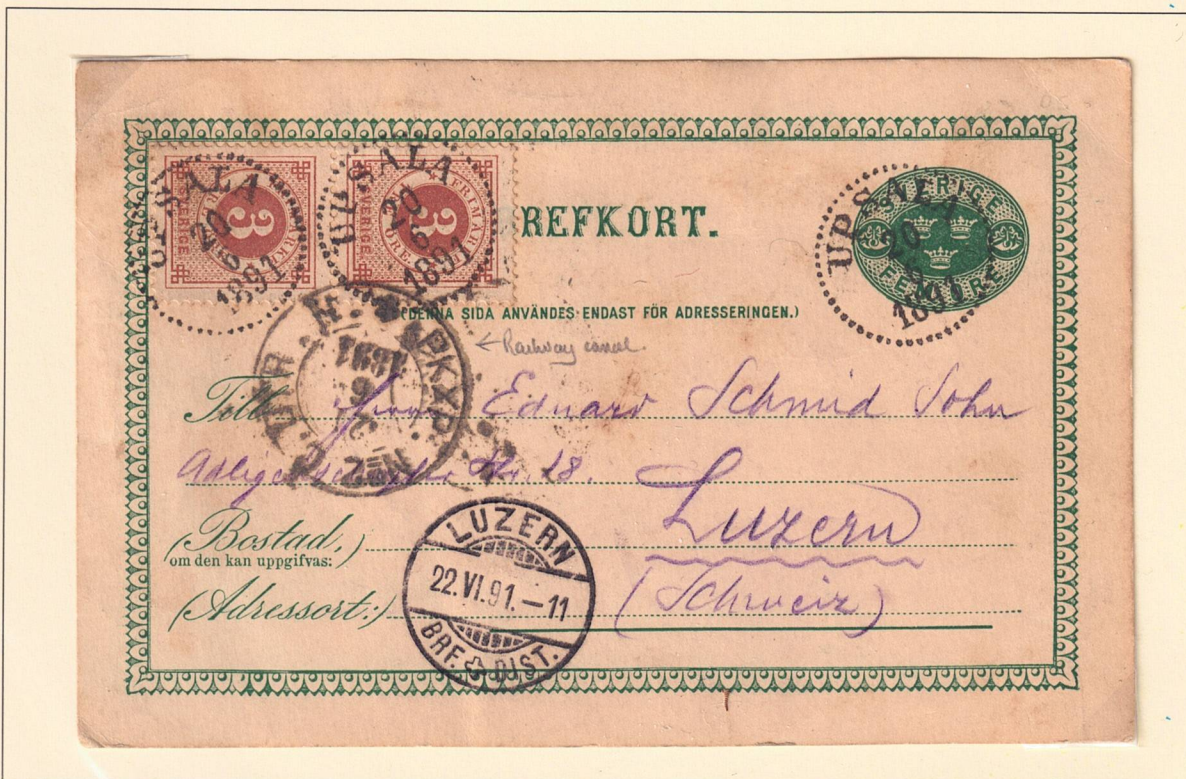 UPSALA
20
6
1891
3
SVERIGE
FRIMÄRKE
ÖRE
UPSALA
20
6
1891
3
SVERIGE
FRIMÄRKE
ÖRE
BREFKORT.
UPSALA
20
6
1891
SVERIGE
FEM ÖRE
(DENNA SIDA ANVÄNDES ENDAST FÖR ADRESSERINGEN.)
← Railway cancel.
PKXP.
1891
6
Till Herrn Eduard Schmid Sohn
No. 18.
Luzern
(Bostad,)
om den kan uppgifvas:
(Schweiz)
(Adressort:)
LUZERN
22.VI.91.–11
BRF. DIST.